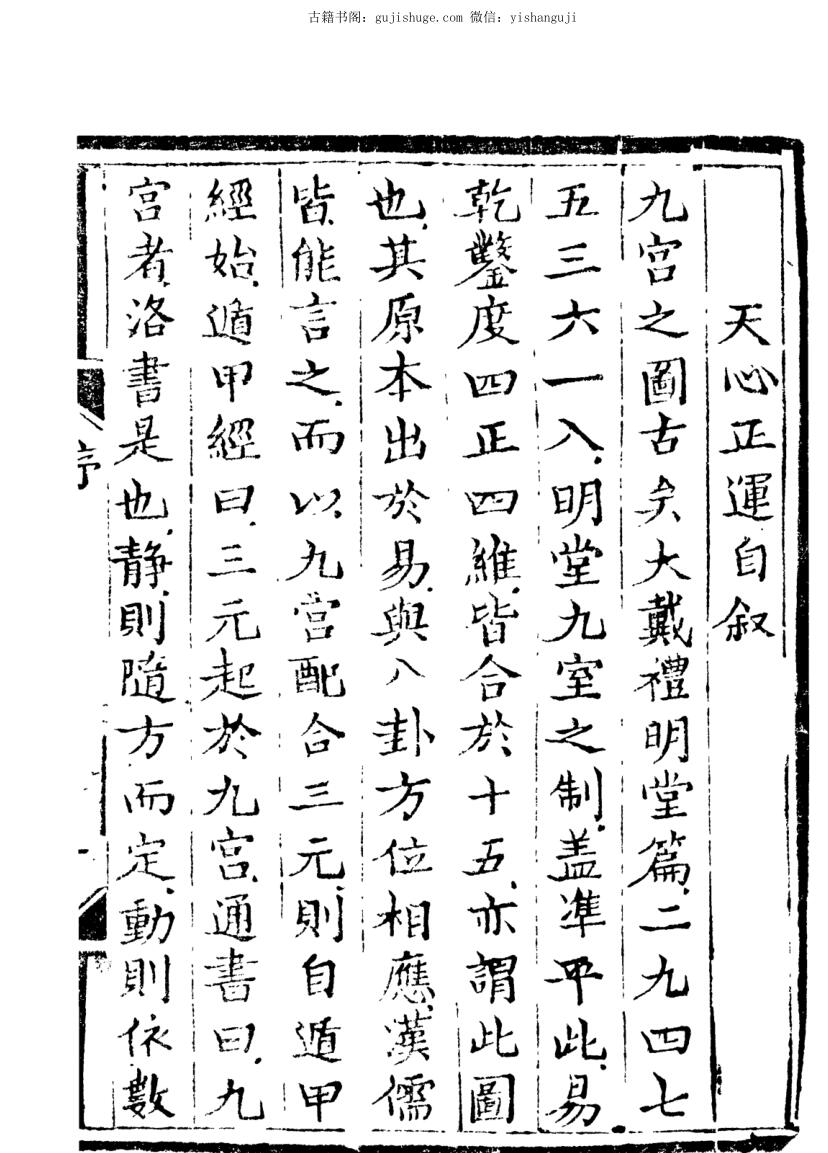 古籍书阁：gujishuge.com 微信：yishanguji
天心正運自叙
九宮之圖古矣大戴禮明堂篇二九四七
五三六一八明堂九室之制盖準平此易
乾鑿度四正四維皆合於十五亦謂此圖
也其原本出於易與八卦方位相應漢儒
皆能言之而以九宮配合三元則自遁甲
經始遁甲經曰三元起於九宮通書曰九
宮者洛書是也静則隨方而定動則依數
序